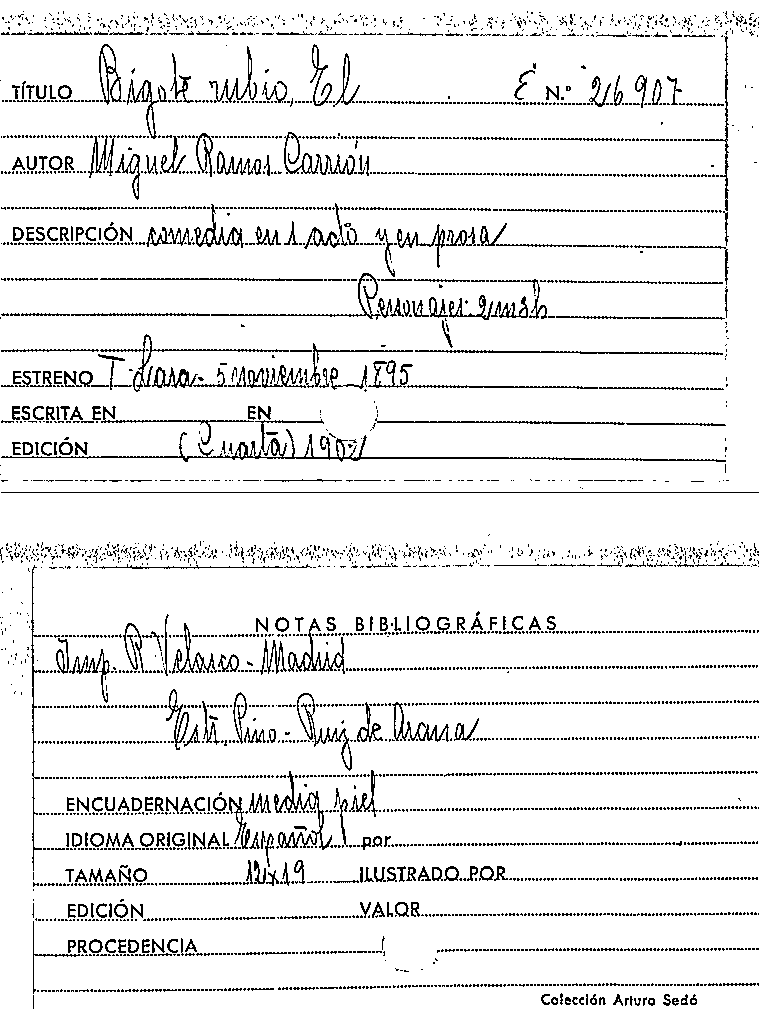 TÍTULO Bigote rubio, El E N.º 26907
AUTOR Miguel Ramos Carrión
DESCRIPCIÓN comedia en 1 acto y en prosa
Personajes: 2m3h
ESTRENO T. Lara - 5 noviembre 1895
ESCRITA EN EN
EDICIÓN (Cuarta) 1902
NOTAS BIBLIOGRÁFICAS
Imp. R Velasco - Madrid
Estr. Pino - Ruiz de Arana
ENCUADERNACIÓN media piel
IDIOMA ORIGINAL Español por
TAMAÑO 12x19 ILUSTRADO POR
EDICIÓN VALOR
PROCEDENCIA
Colección Arturo Sedó